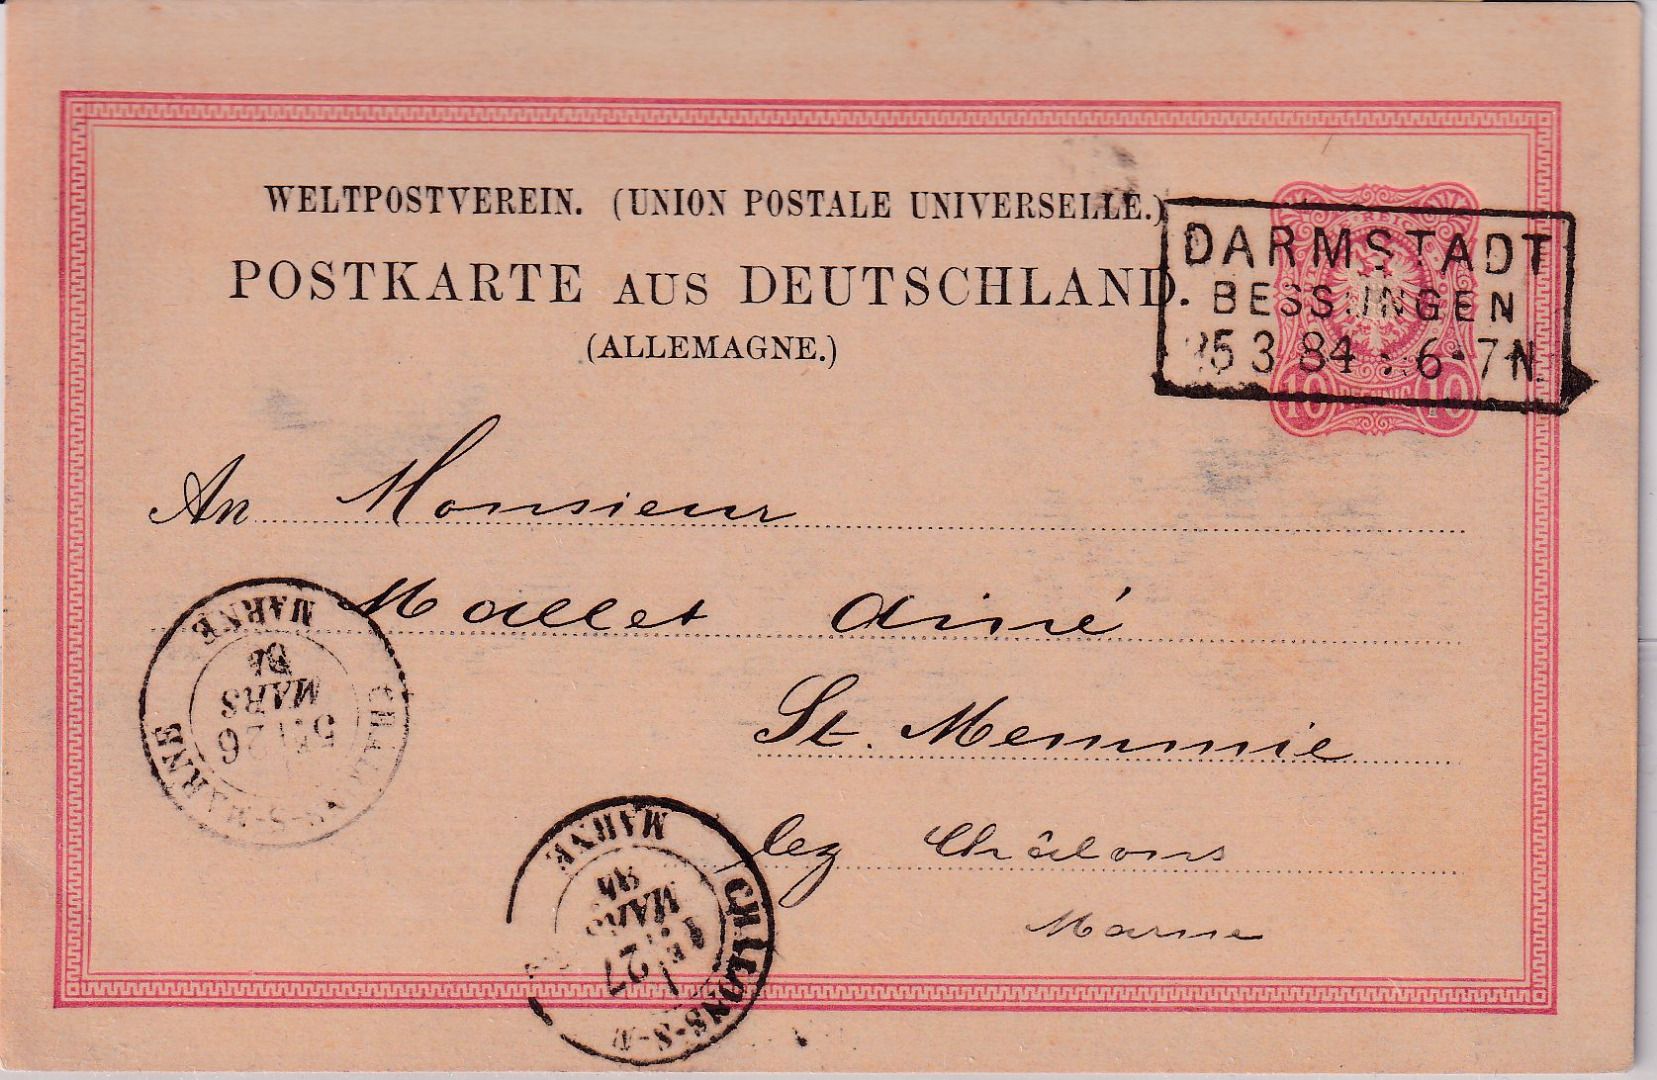 WELTPOSTVEREIN. (UNION POSTALE UNIVERSELLE.)
POSTKARTE AUS DEUTSCHLAND.
(ALLEMAGNE.)
DARMSTADT
BESSUNGEN
25 3 84 6-7N.
REICHS
10 PFENNIG 10
An Monsieur
Mallet Aimé
St. Memmie
lez Châlons
Marne
CHALONS-S-MARNE
5E 26
MARS
84
MARNE
CHALONS-S-M
1E 27
MARS
84
MARNE